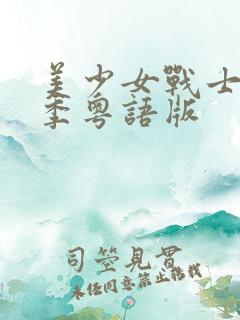 美少女戰士
季粵語版
司空見貫
未經同意禁止轉載